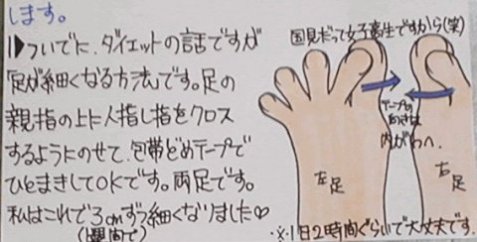 します。
ついでに、ダイエットの話ですが
「足が細くなる方法」です。足の
親指の上に人指し指をクロス
するようにのせて、包帯どめテープで
ひとまきしてOKです。両足です。
私はこれで3cmずつ細くなりました♡
(1週間で)
国見だって女子高生ですから(笑)
テープの
向きは
内がわへ。
左足
右足
※1日2時間ぐらいで大丈夫です。